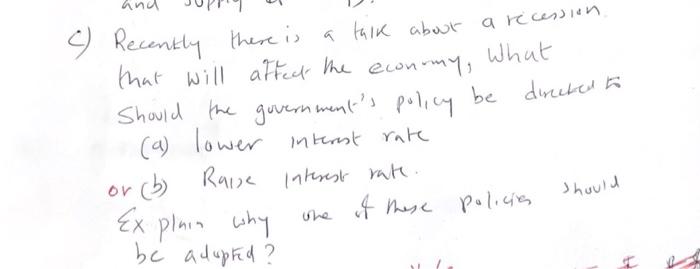 and supply
c) Recently there is a talk about a recession
that will affect the economy, What
Should the government's policy be directed to
(a) lower interest rate
or (b) Raise interest rate.
Explain why one of these policies should
be adopted?